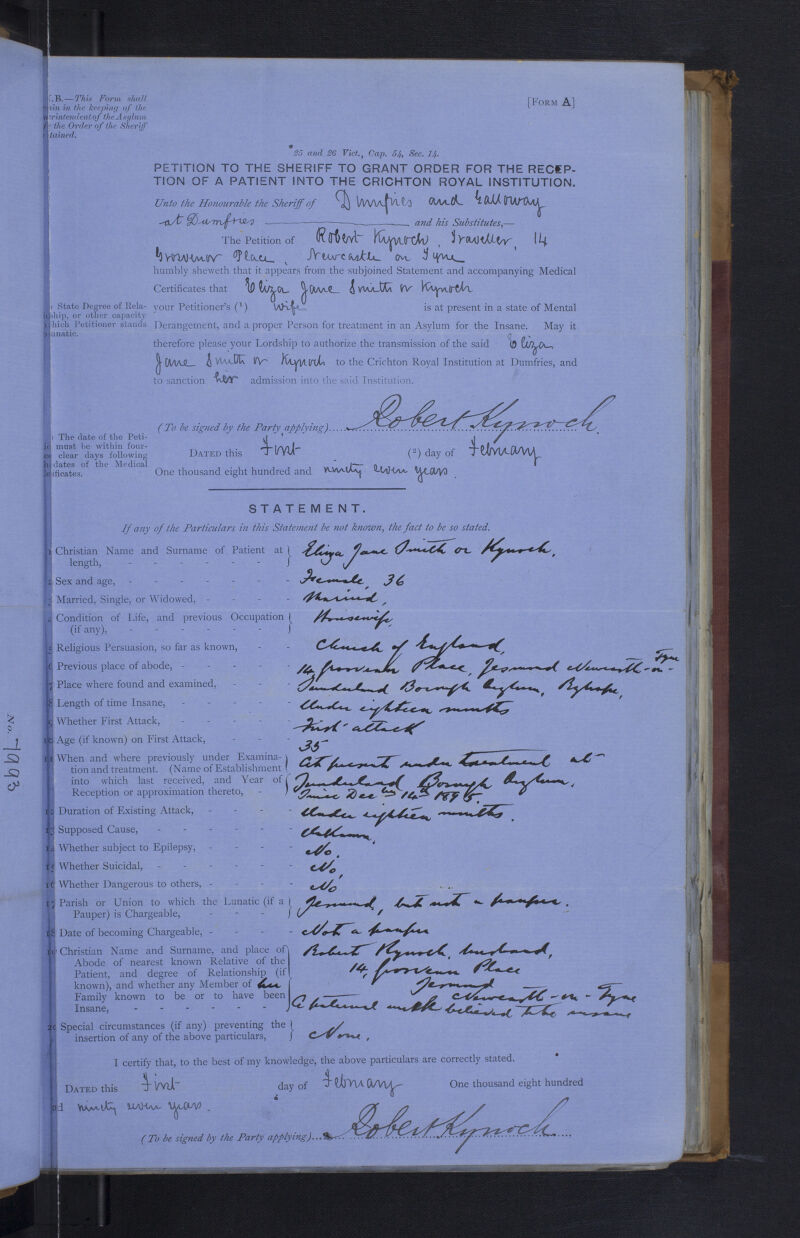 .B.—This Form shall
in in the keeping of the
erintendent of the Asylum
the Order of the Sheriff
tained.
[FORM A]
25 and 26 Vict., Cap. 54, Sec. 14.
PETITION TO THE SHERIFF TO GRANT ORDER FOR THE RECEP-
TION OF A PATIENT INTO THE CRICHTON ROYAL INSTITUTION.
Unto the Honourable the Sheriff of Dumfries and Galloway
at Dumfries and his Substitutes,—
The Petition of Robert Kynoch, Traveller, 14
Grosvenor Place, Newcastle on Tyne
humbly sheweth that it appears from the subjoined Statement and accompanying Medical
Certificates that Eliza Jane Smith or Kynoch
State Degree of Rela-
ship, or other capacity
hich Petitioner stands
anatic.
your Petitioner's (1) Wife is at present in a state of Mental
Derangement, and a proper Person for treatment in an Asylum for the Insane. May it
therefore please your Lordship to authorize the transmission of the said Eliza
Jane Smith or Kynoch to the Crichton Royal Institution at Dumfries, and
to sanction her admission into the said Institution.
(To be signed by the Party applying) Robert Kynoch.
The date of the Peti-
must be within four-
clear days following
dates of the Medical
ificates.
DATED this First (2) day of February
One thousand eight hundred and ninety seven years.
STATEMENT.
If any of the Particulars in this Statement be not known, the fact to be so stated.
Christian Name and Surname of Patient at length, Eliza Jane Smith or Kynoch.
Sex and age, Female, 36
Married, Single, or Widowed, Married,
Condition of Life, and previous Occupation (if any), Housewife
Religious Persuasion, so far as known, Church of England,
Previous place of abode, 14 Grosvenor Place, Jesmond Newcastle-on-Tyne
Place where found and examined, Sunderland Borough Asylum, Ryhope,
Length of time Insane, Under eighteen months
Whether First Attack, First attack
Age (if known) on First Attack, 35
When and where previously under Examina-
tion and treatment. (Name of Establishment
into which last received, and Year of
Reception or approximation thereto,
At present under treatment at
Sunderland Borough Asylum.
Since Dec 14th 1895
Duration of Existing Attack, Under eighteen months.
Supposed Cause, Unknown.
Whether subject to Epilepsy, No.
Whether Suicidal, No,
Whether Dangerous to others, No
Parish or Union to which the Lunatic (if a Pauper) is Chargeable, Jesmond, but not a pauper.
Date of becoming Chargeable, Not a pauper
Christian Name and Surname, and place of
Abode of nearest known Relative of the
Patient, and degree of Relationship (if
known), and whether any Member of her
Family known to be or to have been
Insane,
Robert Kynoch, husband,
14, Grosvenor Place
Jesmond
Newcastle-on-Tyne
A paternal uncle believed to be insane
Special circumstances (if any) preventing the insertion of any of the above particulars, None.
I certify that, to the best of my knowledge, the above particulars are correctly stated.
DATED this First day of February One thousand eight hundred
ninety seven years.
(To be signed by the Party applying) Robert Kynoch
No. 7993